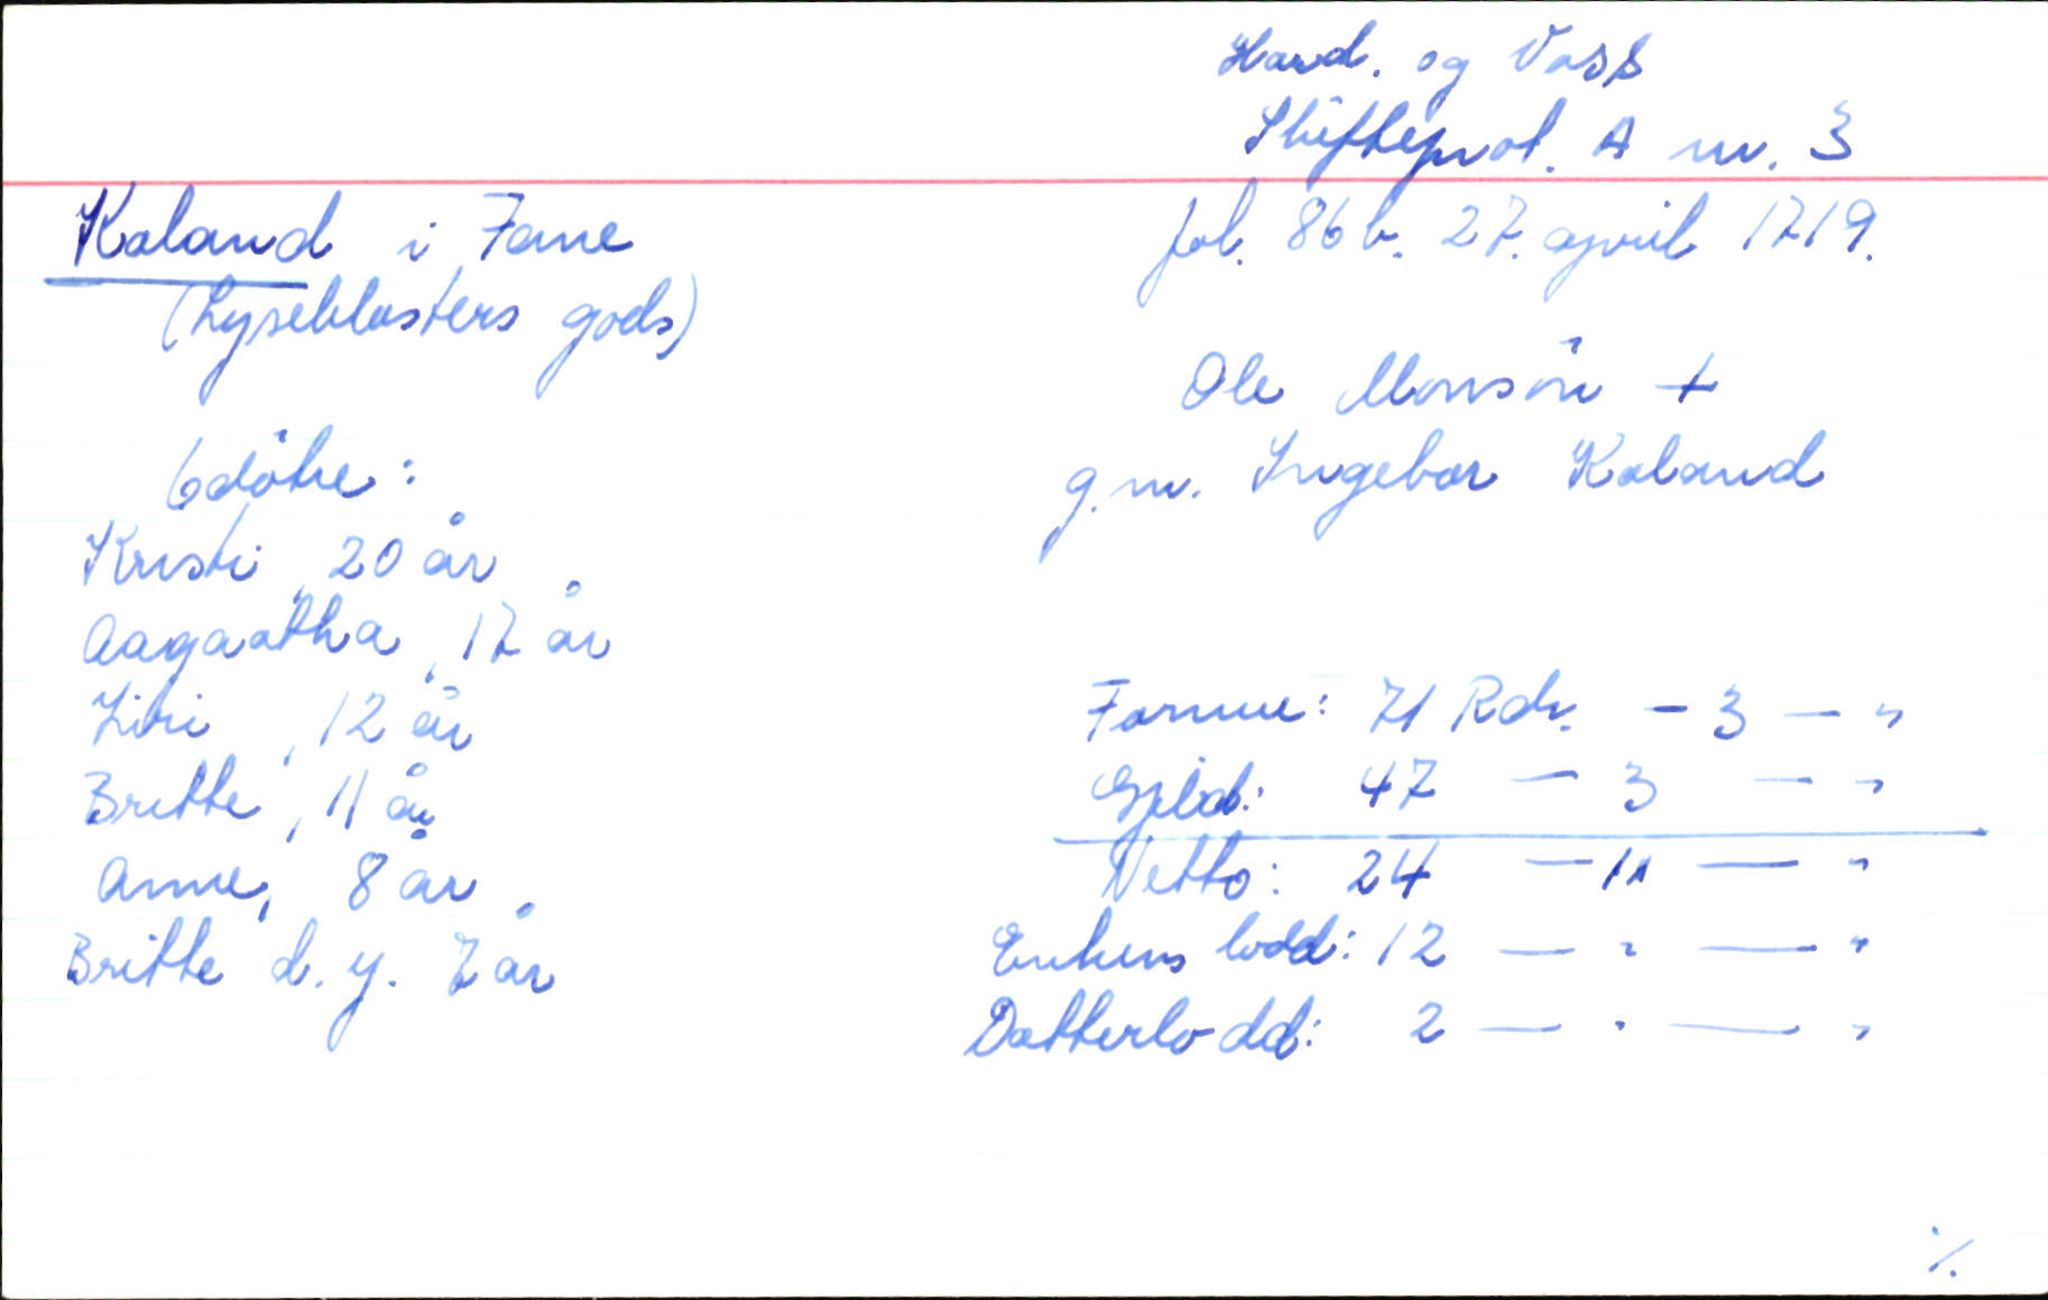 Hard. og Voss
Skifteprot. A nr. 3
fol. 86 b. 27. april 1719.
Kaland i Fane
(Lyseklosters gods)
Ole Monsön +
g.m. Ingebor Kaland
6 dötre:
Kristi, 20 år
Aagaatha, 17 år
Britte, 11 år
Anne, 8 år
Britte d. y. 7 år
Formue: 71 Rdr. - 3 - "
Gjeld: 47 - 3 - "
Netto: 24 - " - "
Enkens lodd: 12 - " - "
Datterlodd: 2 - " - "
./.